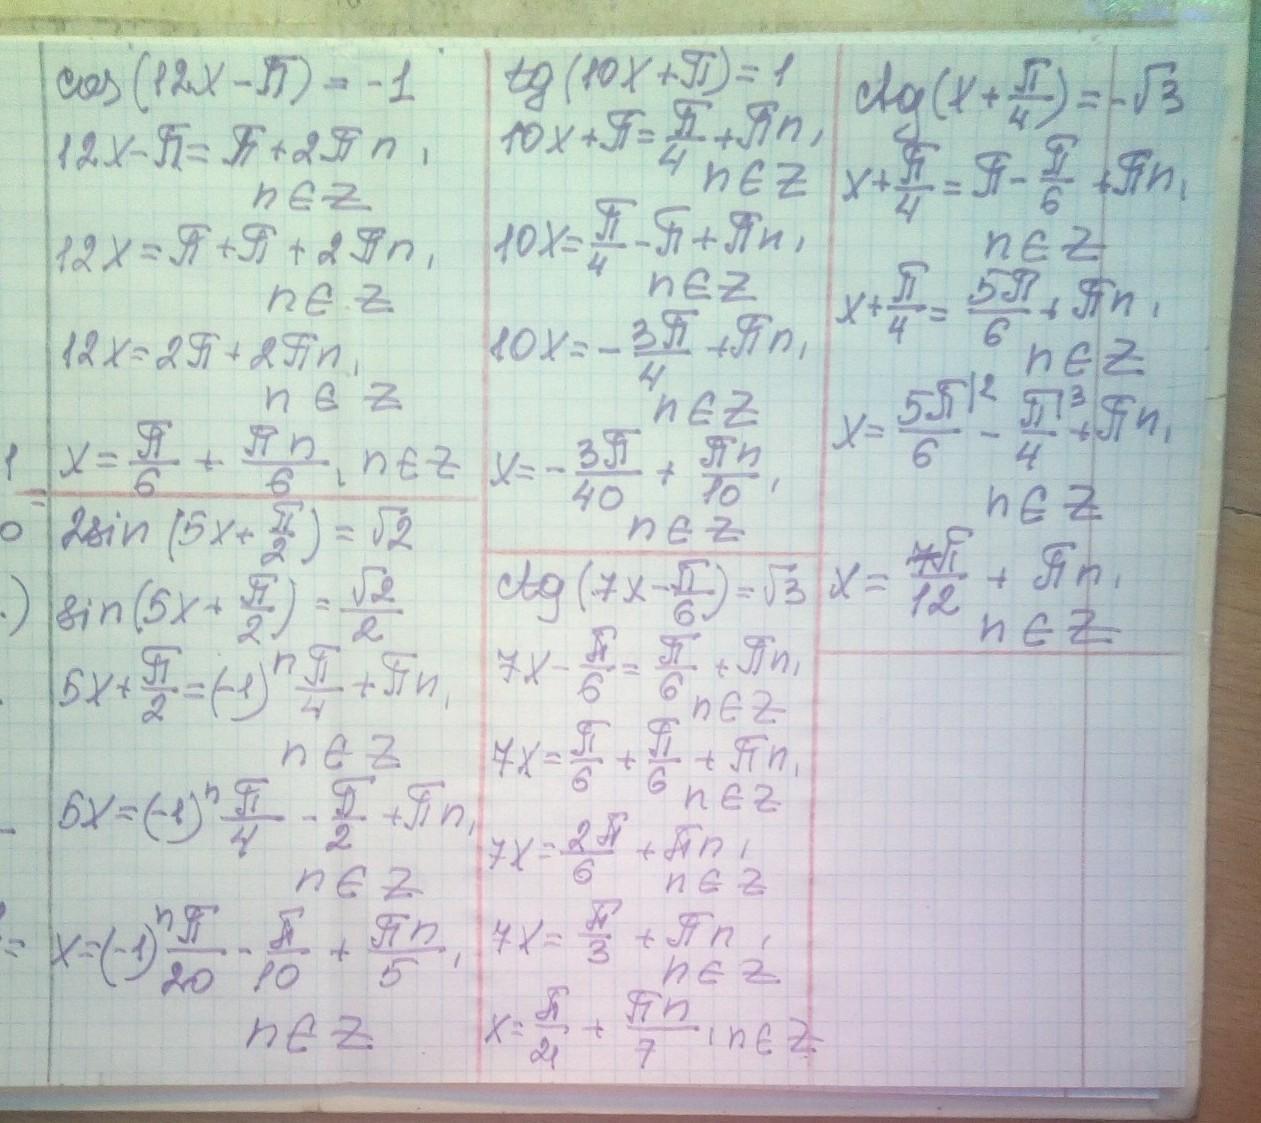 cos(12x-π) = -1
12x-π = π+2πn,
n∈Z
12x = π+π+2πn,
n∈Z
12x = 2π+2πn,
n ∈ Z
x = π/6 + πn/6, n∈Z
2sin(5x+π/2) = √2
sin(5x+π/2) = √2/2
5x+π/2 = (-1)^n π/4 + πn,
n ∈ Z
5x = (-1)^n π/4 - π/2 + πn,
n ∈ Z
x = (-1)^n π/20 - π/10 + πn/5,
n ∈ Z
tg(10x+π) = 1
10x+π = π/4 + πn,
n∈Z
10x = π/4 - π + πn,
n∈Z
10x = -3π/4 + πn,
n∈Z
x = -3π/40 + πn/10,
n∈Z
ctg(7x-π/6) = √3
7x-π/6 = π/6 + πn,
n∈Z
7x = π/6 + π/6 + πn,
n∈Z
7x = 2π/6 + πn,
n∈Z
7x = π/3 + πn,
n∈Z
x = π/21 + πn/7, n∈Z
ctg(x+π/4) = -√3
x+π/4 = π-π/6 + πn,
n∈Z
x+π/4 = 5π/6 + πn,
n∈Z
x = 5π|2/6 - π|3/4 + πn,
n∈Z
x = 7π/12 + πn,
n∈Z